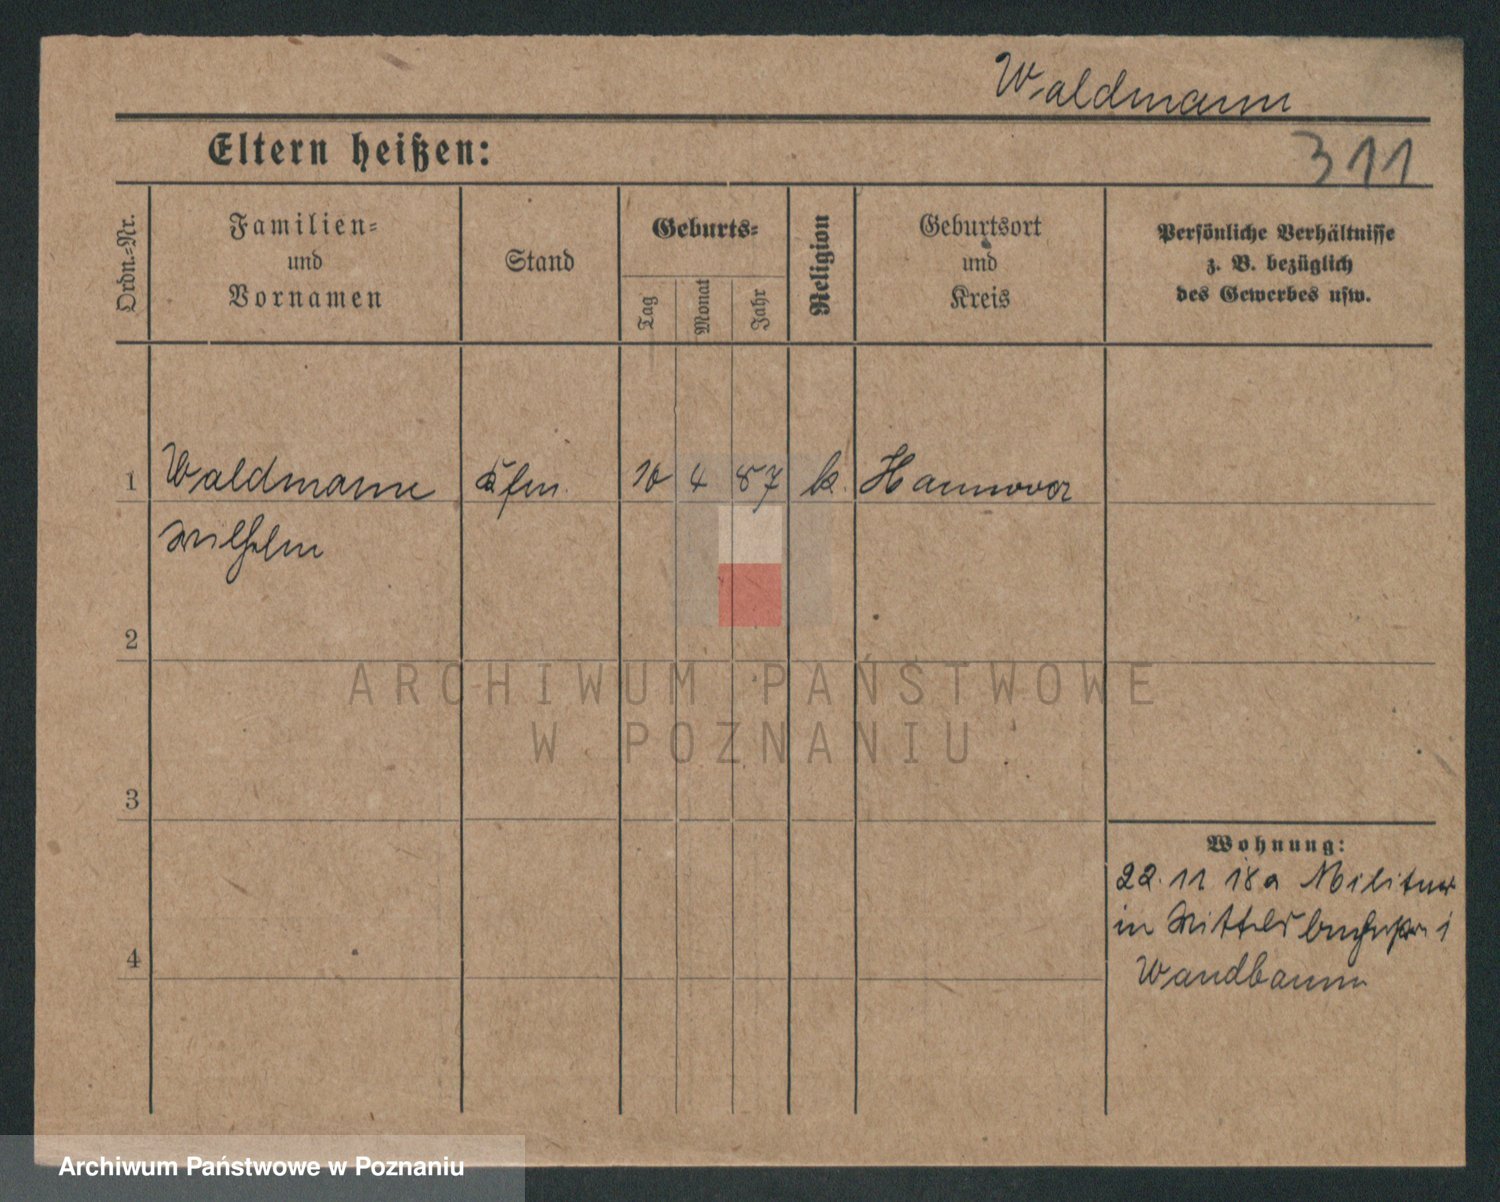 Waldmann
Eltern heißen:
311
Ordn.-Nr.
Familien-
und
Vornamen
Stand
Geburts-
Tag
Monat
Jahr
Religion
Geburtsort
und
Kreis
Persönliche Verhältnisse
z. B. bezüglich
des Gewerbes usw.
1
Waldmann
Kfm.
10
4
87
k.
Hannover
Wilhelm
2
ARCHIWUM PAŃSTWOWE
W POZNANIU
3
Wohnung:
22. 11 18 a
in
4
Archiwum Państwowe w Poznaniu